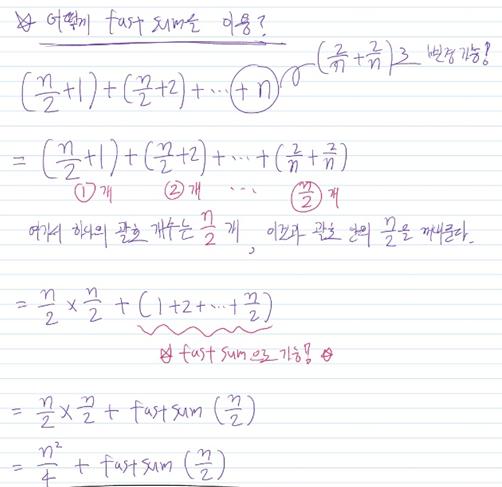 ☆ 어떻게 fast sum을 이용?
(n/2+1)+(n/2+2)+…+n (2/n+2/n)로 변경 가능!
= (n/2+1)+(n/2+2)+…+(2/n+2/n)
①개 ②개 … n/2개
여기서 하나의 괄호 개수는 n/2개, 이것과 괄호 안의 n/2을 꺼내준다.
= n/2 × n/2 + (1+2+…+n/2)
☆ fast sum으로 가능! ☆
= n/2 × n/2 + fast sum (n/2)
= n²/4 + fast sum (n/2)